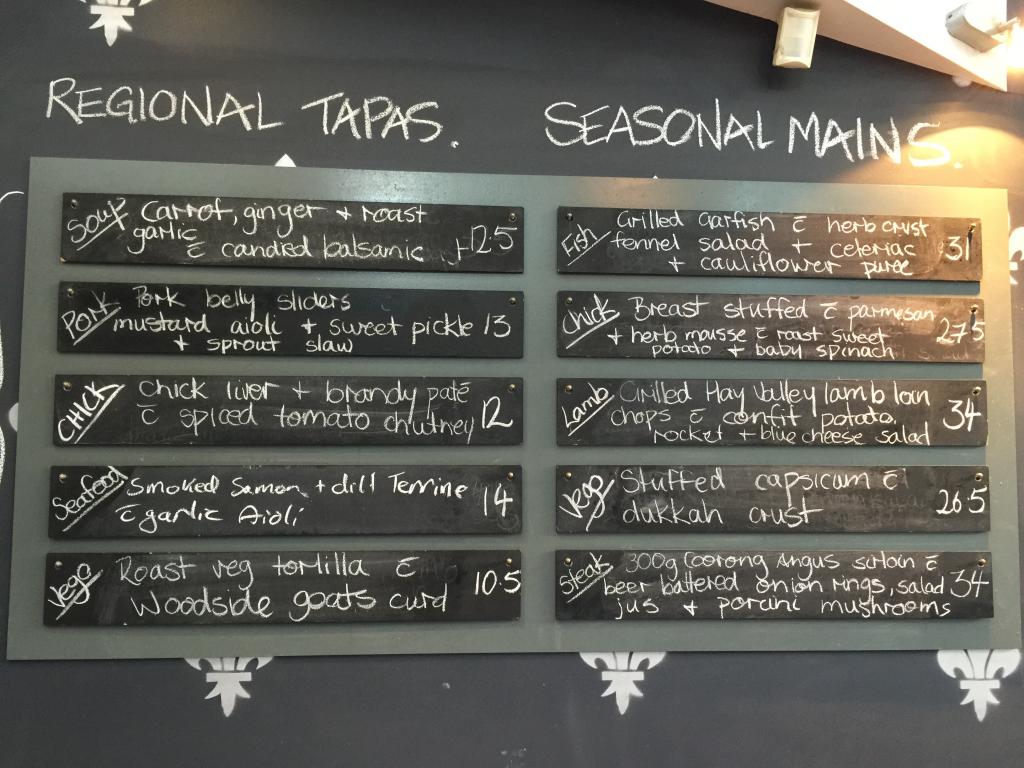 REGIONAL TAPAS.
Soup
Carrot, ginger + roast
garlic
c̄ candied balsamic
12.5
Pork
Pork belly sliders
mustard aioli + sweet pickle
+ sprout slaw
13
CHICK
Chick liver + brandy paté
c̄ spiced tomato chutney
12
Seafood
Smoked Samon + dill Terrine
c̄ garlic Aioli
14
Vego
Roast veg tortilla c̄
Woodside goats curd
10.5
SEASONAL MAINS.
Fish
Grilled Garfish c̄ herb crust
fennel salad + celeriac
+ cauliflower puree
31
Chick
Breast stuffed c̄ parmesan
+ herb mousse c̄ roast sweet
potato + baby spinach
27.5
Lamb
Grilled Hay Valley lamb loin
chops c̄ confit potato,
rocket + blue cheese salad
34
Vego
Stuffed capsicum c̄
dukkah crust
26.5
Steak
300g Coorong Angus sirloin c̄
beer battered onion rings, salad
jus + porcini mushrooms
34